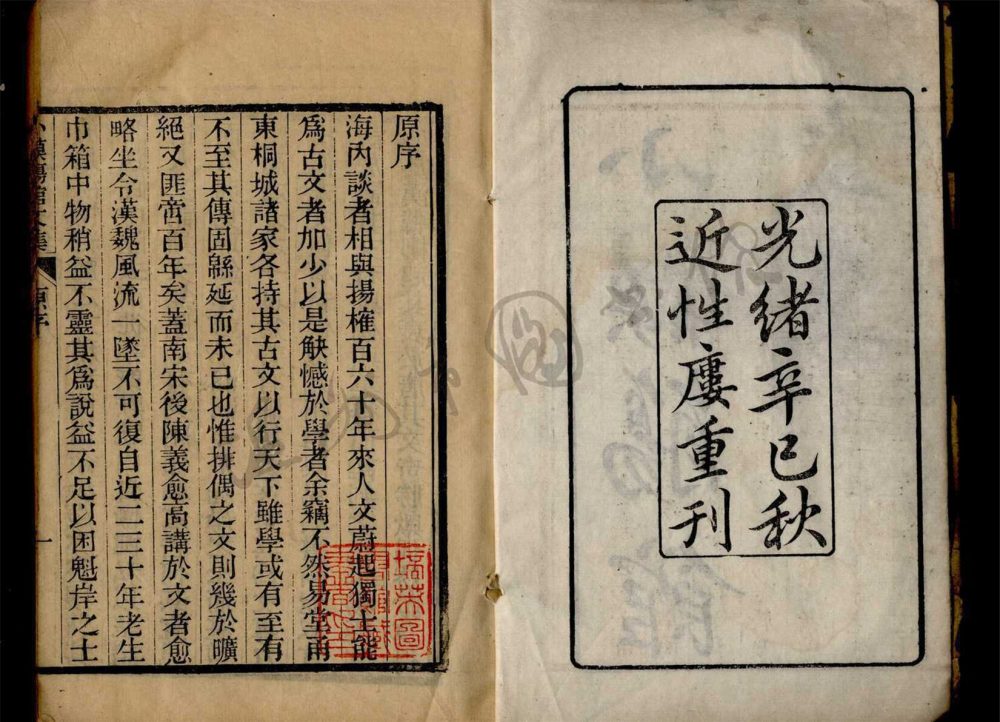 光緒辛巳秋
近性廔重刊
原序
海內談者相與揚榷百六十年來人文蔚起獨士能
爲古文者加少以是觖憾於學者余竊不然易堂甬
東桐城諸家各持其古文以行天下雖學或有至有
不至其傳固緜延而未已也惟排偶之文則幾於曠
絕又匪啻百年矣蓋南宋後陳義愈高講於文者愈
略坐令漢魏風流一墜不可復自近二三十年老生
巾箱中物稍益不靈其爲說益不足以困魁岸之士
小謨觴館文集 原序 一